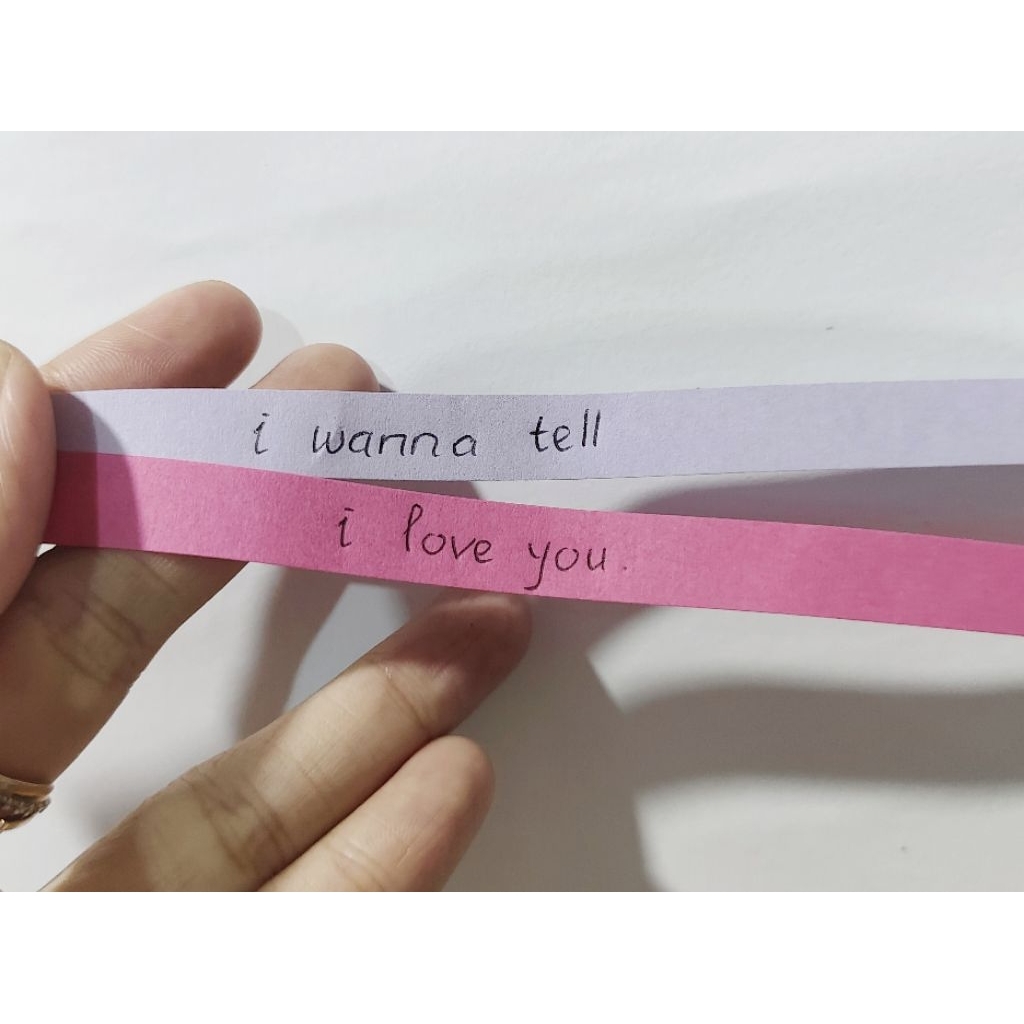 i wanna tell
i love you.